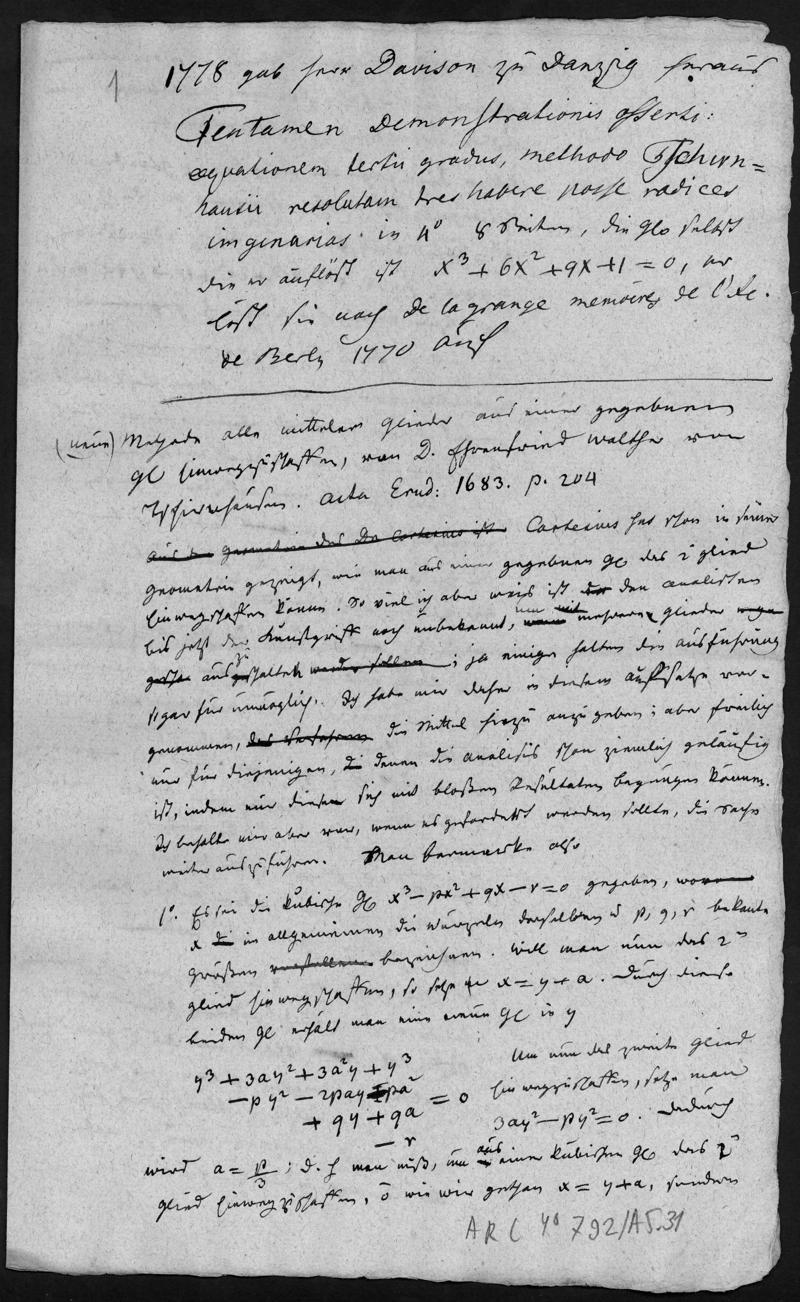 1
1778 gab herr Davison zu Danzig heraus
Tentamen Demonstrationis asserti:
æquationem tertii gradus, methodo Tschirn=
hausii resolutam tres habere posse radices
imaginarias. in 4° 8 Seiten, die Glo selbst
die er auflöst ist x³ + 6x² + 9x + 1 = 0, er
löst sie nach De la grange memoires de l'Ac.
de Berlin 1770 auf
(neue) Methode alle mittleren Glieder aus einer gegebenen
Gl hinwegzuschaffen, von D. Ehrenfried Walther von
Tschirnhausen. Acta Erud: 1683. p. 204
aus d. Geometrie des Des Cartesius ist Cartesius hat schon in seiner
geometrie gezeigt, wie man aus einer gegebenen Gl das 2 glied
hinwegschaffen könne. So viel ich aber weis ist den analisten
bis jetzt der Kunstgriff noch unbekannt, um mit mehrere glieder
auszuschalten werden sollen; ja einige halten die ausführung
sogar für unmöglich. Ich habe mir daher in diesem aufsatze vor=
genommen, das Verfahren die Mittel hiezu anzugeben; aber freilich
nur für diejenigen, denen die analisis schon ziemlich geläufig
ist, indem nur diese sich mit bloßen Resultaten begnügen können.
Ich behalte mir aber vor, wenn es gefordert werden sollte, die Sache
weiter auszuführen. Man bemerke also
1°. Es sei die kubische Gl x³ − px² + qx − r = 0 gegeben,
x im allgemeinen die Wurzeln derselben u p, q, r bekannte
größen vorstellen bezeichnen. Will man nun das 2te
glied hinwegschaffen, so setze x = y + a. durch diese
beiden Gl erhält man eine neue Gl in y
y³ + 3ay² + 3a²y + y³
− py² − 2pay − pa² = 0
+ qy + qa
− r
Um nun das zweite Glied
hinwegzuschaffen, setze man
3ay² − py² = 0. dadurch
wird a = p/3; d. h man muß, um aus einer kubischen Gl das 2te
glied hinwegzuschaffen, wie wir gethan x = y + a, sondern
ARC 4° 792/A5.31